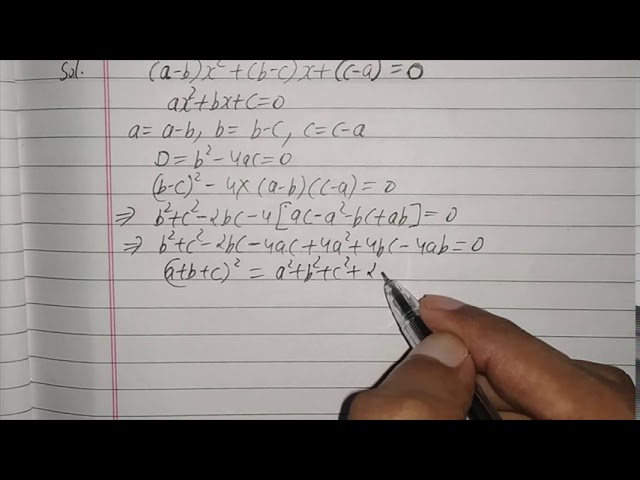 Sol. (a-b)x²+(b-c)x+(c-a)=0
ax²+bx+c=0
a= a-b, b= b-c, c= c-a
D= b²-4ac=0
(b-c)²-4×(a-b)(c-a)=0
⇒ b²+c²-2bc-4[ac-a²-bc+ab]=0
⇒ b²+c²-2bc-4ac+4a²+4bc-4ab=0
(a+b+c)² = a²+b²+c²+2